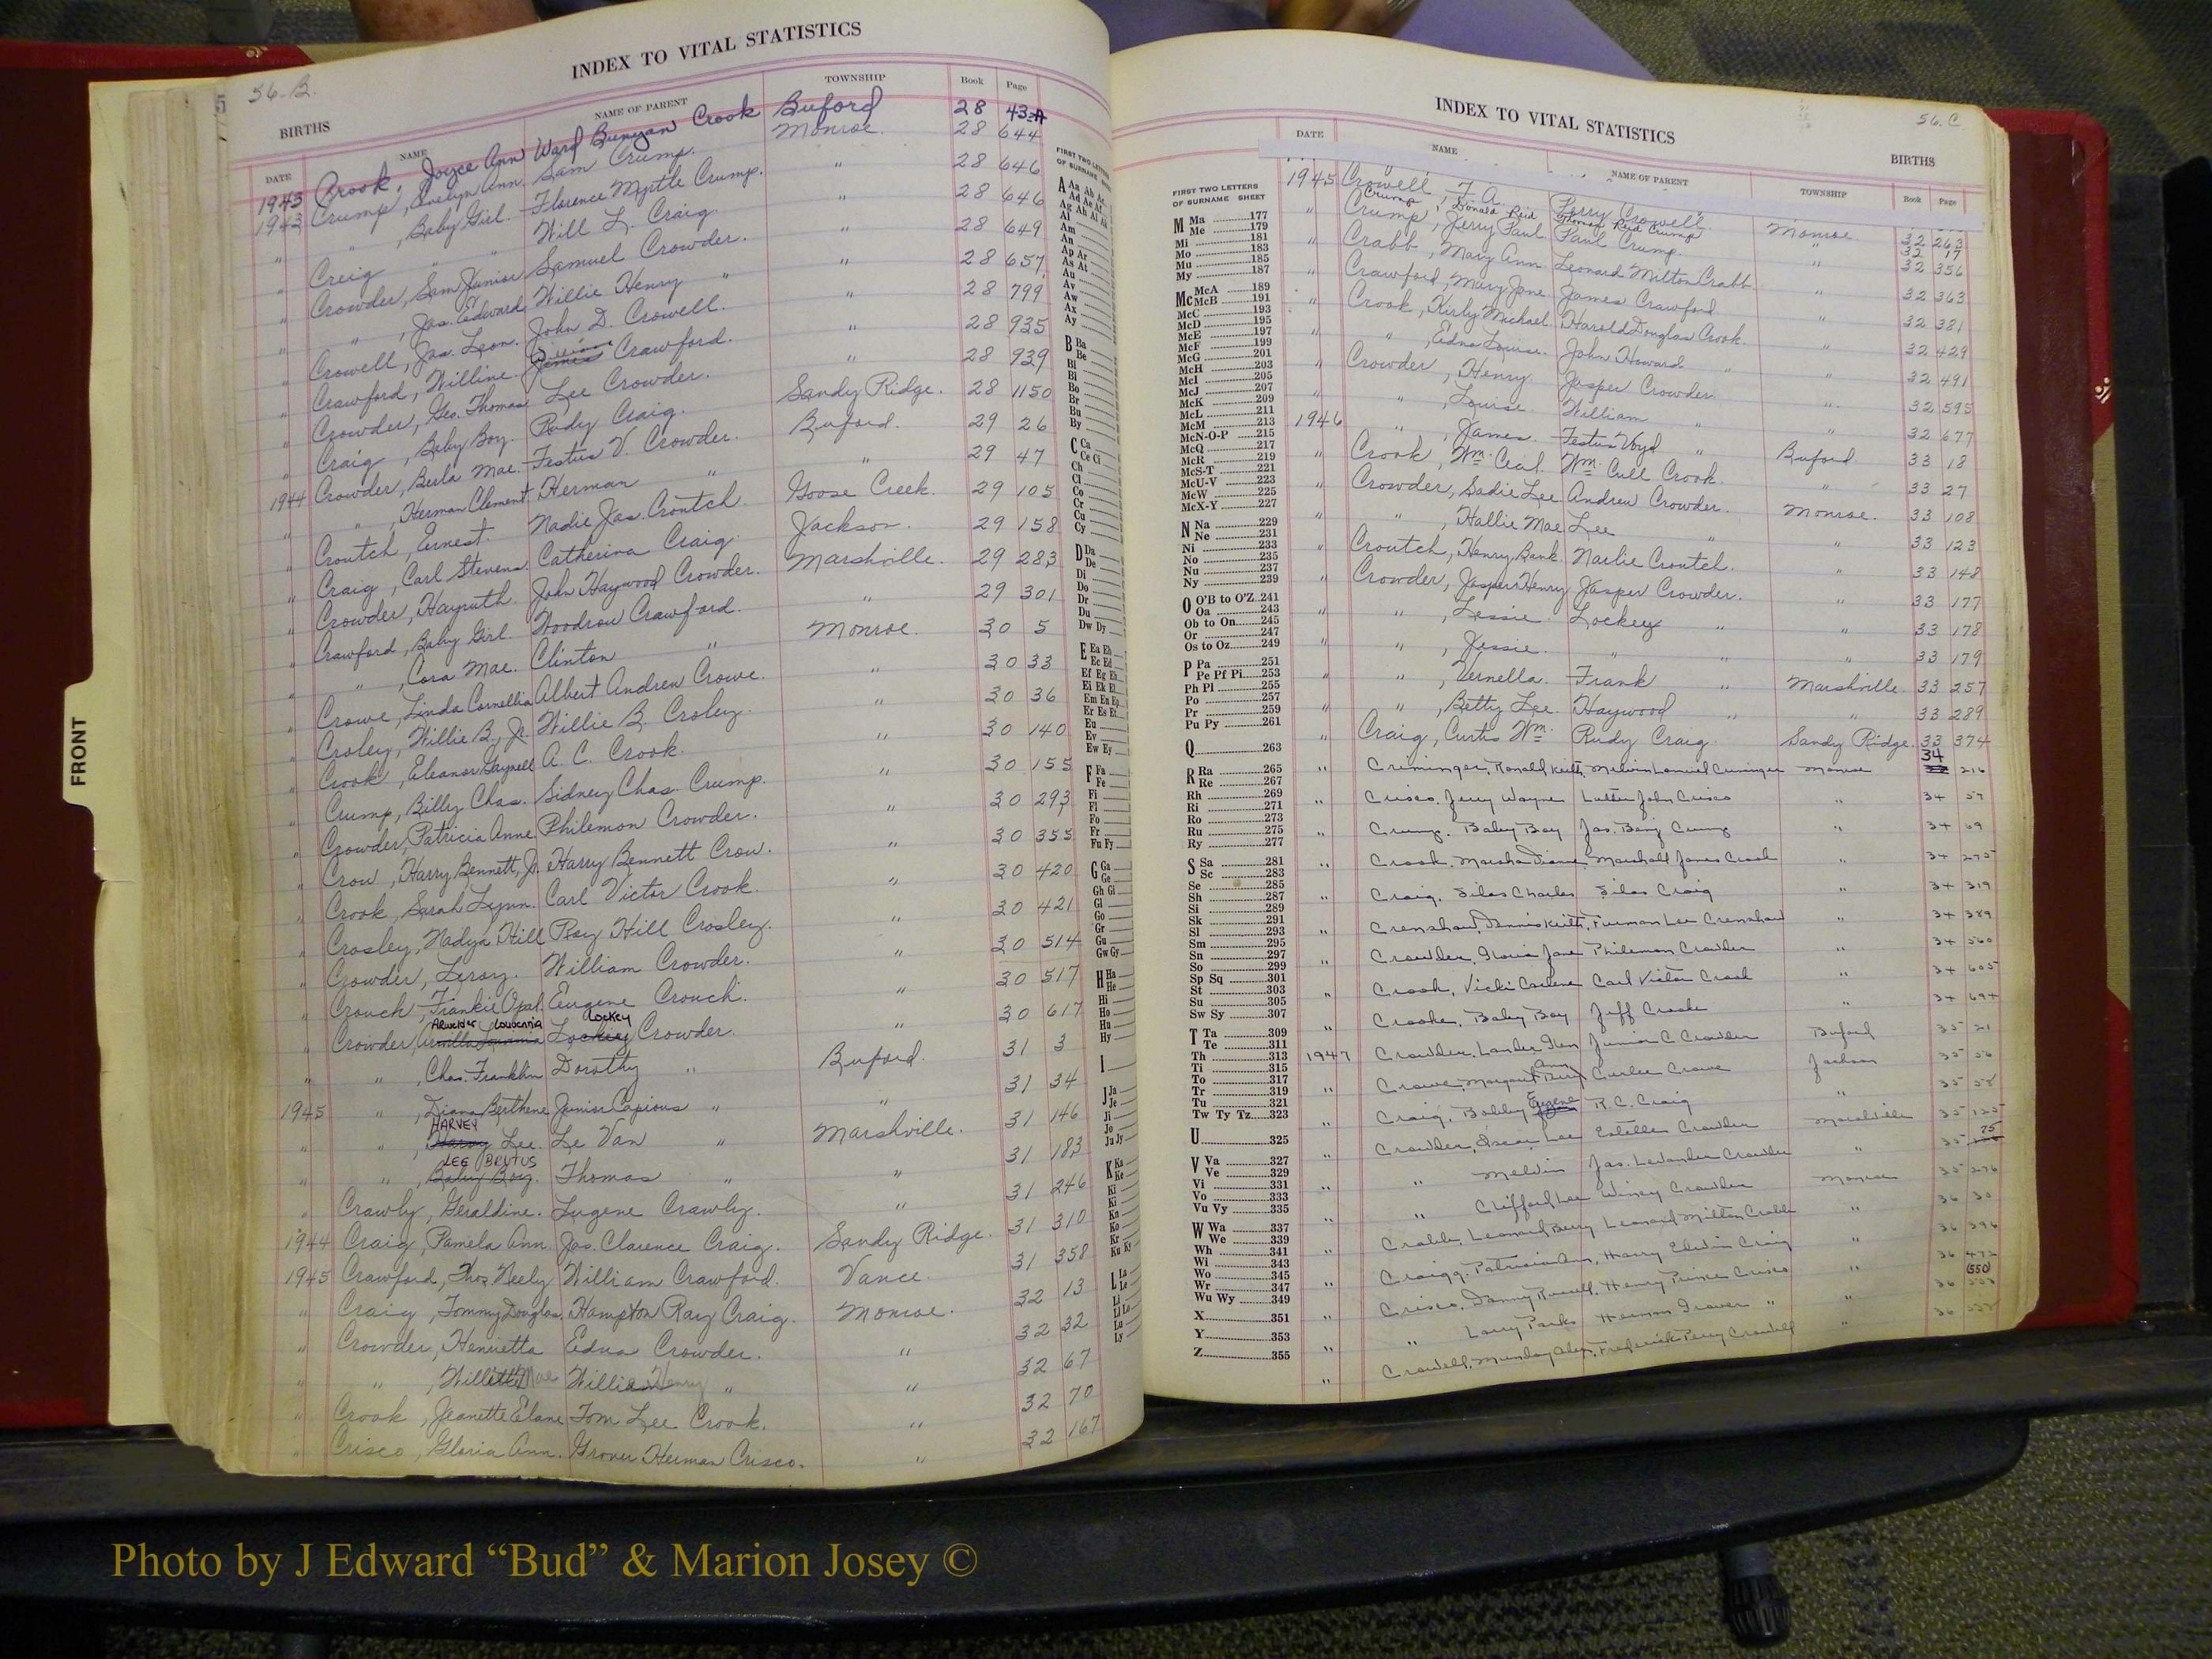 56-B.
INDEX TO VITAL STATISTICS
BIRTHS
DATE NAME NAME OF PARENT TOWNSHIP Book Page
1943 Crook, Joyce Ann Ward Bunyan Crook Buford 28 43-A
1943 Crump, Evelyn Ann. Sam Crump. Monroe. 28 644
" " , Baby Girl. Florence Myrtle Crump. " 28 646
" Creig " " Will L. Craig " 28 646
" Crowder, Sam Junior Samuel Crowder. " 28 649
" " , Jas. Edward Willie Henry " " 28 657
" Crowell, Jas. Leon. John D. Crowell. " 28 799
" Crawford, Willine. Crawford. " 28 935
" Crowder, Geo. Thomas Lee Crowder. " 28 939
" Craig, Baby Boy. Rudy Craig. Sandy Ridge. 28 1150
1944 Crowder, Berla Mae. Festus V. Crowder. Buford. 29 26
" " , Herman Clement. Herman " " 29 47
" Croutch, Ernest. Nadie Jas. Croutch Goose Creek. 29 105
" Craig, Carl Stevens. Catherina Craig. Jackson. 29 158
" Crowder, Hayruth. John Haywood Crowder. Marshville. 29 283
" Crawford, Baby Girl. Woodrow Crawford. " 29 301
" " , Cora Mae. Clinton " Monroe. 30 5
" Crowe, Linda Cornellia Albert Andrew Crowe. " 30 33
" Croley, Willie B., Jr. Willie B. Croley. " 30 36
" Crook, Eleanor Gaynell A. C. Crook. " 30 140
" Crump, Billy Chas. Sidney Chas. Crump. " 30 155
" Crowder, Patricia Anne Philemon Crowder. " 30 293
" Crow, Harry Bennett, Jr. Harry Bennett Crow. " 30 355
" Crook, Sarah Lynn. Carl Victor Crook. " 30 420
" Crosley, Nadya Hill Roy Hill Crosley. " 30 421
" Crowder, Leroy. William Crowder. " 30 514
" Crouch, Frankie Opal. Eugene Crouch. " 30 517
Louvenia Lockey
" Crowder, Lockey Crowder. " 30 617
" " , Chas. Franklin Dorothy " Buford. 31 3
1945 " , Diana Berthene Junior Capious " " 31 34
HARVEY
" " , Harvy Lee. Le Van " Marshville. 31 146
LEE BRUTUS
" " , Baby Boy. Thomas " " 31 183
" Crawly, Geraldine. Eugene Crawly. " 31 246
1944 Craig, Pamela Ann Jas. Clarence Craig. Sandy Ridge. 31 310
1945 Crawford, Thos Neely William Crawford. Vance. 31 358
" Craig, Tommy Douglas. Hampton Ray Craig. Monroe. 32 13
" Crowder, Henrietta Edna Crowder. " 32 32
" " , Mae Henry " " 32 67
" Crook, Jeanette Elane Tom Lee Crook. " 32 70
" Crisco, Gloria Ann. Grover Herman Crisco. " 32 167
FRONT
FIRST TWO LETTERS
OF SURNAME
A Aa Ab Ac
Ad Ae Af
Ag Ah Ai Aj
Al
Am
An
Ap Ar
As At
Au
Av
Aw
Ax
Ay
B Ba
Be
Bi
Bl
Bo
Br
Bu
By
C Ca
Ce Ci
Ch
Cl
Co
Cr
Cu
Cy
D Da
De
Di
Do
Dr
Du
Dw Dy
E Ea Eb
Ec Ed
Ef Eg Eh
Ei Ek El
Em En Ep
Er Es Et
Eu
Ev
Ew Ey
F Fa
Fe
Fi
Fl
Fo
Fr
Fu Fy
G Ga
Ge
Gh Gi
Gl
Go
Gr
Gu
Gw Gy
H Ha
He
Hi
Ho
Hu
Hy
I
J Ja
Je
Ji
Jo
Ju Jy
K Ka
Ke
Ki
Kl
Kn
Ko
Kr
Ku Ky
L La
Le
Li
Ll Lo
Lu
Ly
56.C
INDEX TO VITAL STATISTICS
BIRTHS
DATE NAME NAME OF PARENT TOWNSHIP Book Page
1945 Crowell, F. A. Perry Crowell. Monroe 32 263
Crump, Donald Reid Thomas Reid Crump 32 17
" Crump, Jerry Paul. Paul Crump. " 32 356
" Crabb, Mary Ann. Leonard Milton Crabb " 32 363
" Crawford, Mary Jane. James Crawford " 32 381
" Crook, Kirby Michael. Harold Douglas Crook. " 32 429
" " , Edna Louise. John Howard. " " 32 491
" Crowder, Henry Jasper Crowder. " 32 595
" " , Louise. William " " 32 677
1946 " , James. Festus Voyd " Buford. 33 18
" Crook, Wm. Cecil. Wm. Cull Crook. " 33 27
" Crowder, Sadie Lee Andrew Crowder. Monroe. 33 108
" " , Hallie Mae Lee " " 33 123
" Croutch, Henry Bank. Narlie Croutch. " 33 148
" Crowder, Jasper Henry Jasper Crowder. " 33 177
" " , Lessie. Lockey " " 33 178
" " , Jessie. " " " 33 179
" " , Vernella. Frank " Marshville 33 257
" " , Betty Lee. Haywood " " 33 289
" Craig, Curtis Wm. Rudy Craig. Sandy Ridge. 33 374
" Creminger, Ronald Keith, Melvin Lemuel Cuminger Monroe 34 216
" Crisco, Jerry Wayne Luther John Crisco " 34 57
" Crump, Baby Boy Jas. Benj Crump " 34 69
" Crook, Marsha Diane, Marshall James Crook " 34 275
" Craig, Silas Charles Silas Craig " 34 319
" Crenshaw, Dennis Keith, Furman Lee Crenshaw " 34 389
" Crowder, Jane Philemon Crowder " 34 560
" Crook, Vicki Carlene Carl Victor Crook " 34 605
" Crooke, Baby Boy Jeff Crooke " 34 694
1947 Crowder, Junior C. Crowder Buford 35 21
Ann
" Crowe, Margaret Curlee Crowe Jackson 35 56
" Craig, Bobby Eugene R. C. Craig " 35 58
" Crowder, Oscar Lee Estelle Crowder Marshville 35 125
" " Melvin Jas. Levander Crowder " 35 75
" " Clifford Lee Crowder Monroe 35 276
" Crabb, Leonard Berry Leonard Milton Crabb " 36 30
" Craigg, Patricia Ann, Harry Edwin Craig " 36 396
" Crisco, Danny Russell, Henry Prince Crisco " 36 472
" " Larry Parks Herman Grover " " 36 (550)
" Crowell, Munday Alex, Frederick Perry Crowell " 36
FIRST TWO LETTERS
OF SURNAME SHEET
M Ma 177
Me 179
Mi 181
Mo 183
Mu 185
My 187
Mc McA 189
McB 191
McC 193
McD 195
McE 197
McF 199
McG 201
McH 203
McI 205
McJ 207
McK 209
McL 211
McM 213
McN-O-P 215
McQ 217
McR 219
McS-T 221
McU-V 223
McW 225
McX-Y 227
N Na 229
Ne 231
Ni 233
No 235
Nu 237
Ny 239
O O'B to O'Z 241
Oa 243
Ob to On 245
Or 247
Os to Oz 249
P Pa 251
Pe Pf Pi 253
Ph Pl 255
Po 257
Pr 259
Pu Py 261
Q 263
R Ra 265
Re 267
Rh 269
Ri 271
Ro 273
Ru 275
Ry 277
S Sa 281
Sc 283
Se 285
Sh 287
Si 289
Sk 291
Sl 293
Sm 295
Sn 297
So 299
Sp Sq 301
St 303
Su 305
Sw Sy 307
T Ta 309
Te 311
Th 313
Ti 315
To 317
Tr 319
Tu 321
Tw Ty Tz 323
U 325
V Va 327
Ve 329
Vi 331
Vo 333
Vu Vy 335
W Wa 337
We 339
Wh 341
Wi 343
Wo 345
Wr 347
Wu Wy 349
X 351
Y 353
Z 355
Photo by J Edward “Bud” & Marion Josey ©